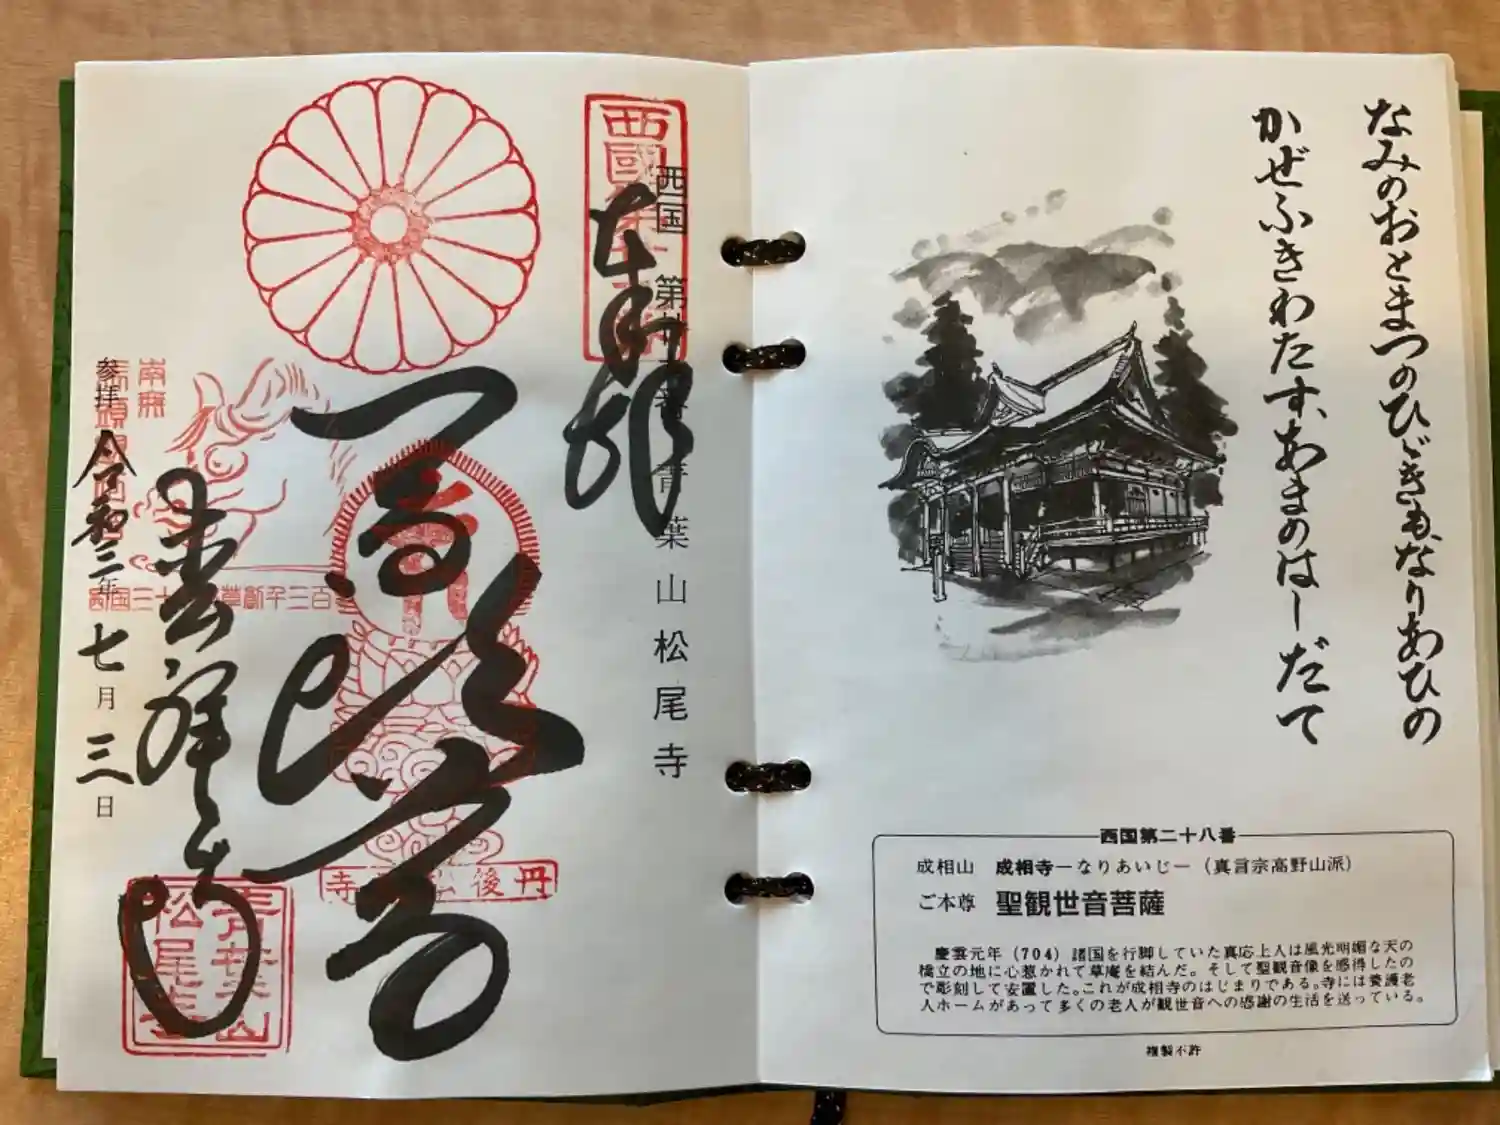 なみのおとまつのひゞきも、なりあひの
かぜふきわたす、あまのはしだて
西国第二十八番
成相山 成相寺―なりあいじ―（真言宗高野山派）
ご本尊 聖観世音菩薩
慶雲元年（704）諸国を行脚していた真応上人は風光明媚な天の
橋立の地に心惹かれて草庵を結んだ。そして聖観音像を感得したの
で彫刻して安置した。これが成相寺のはじまりである。寺には養護老
人ホームがあって多くの老人が観世音への感謝の生活を送っている。
複製不許
西国 第廿九番 青葉山松尾寺
奉拝
参拝 令和三年七月三日
南無
青葉山
松尾寺